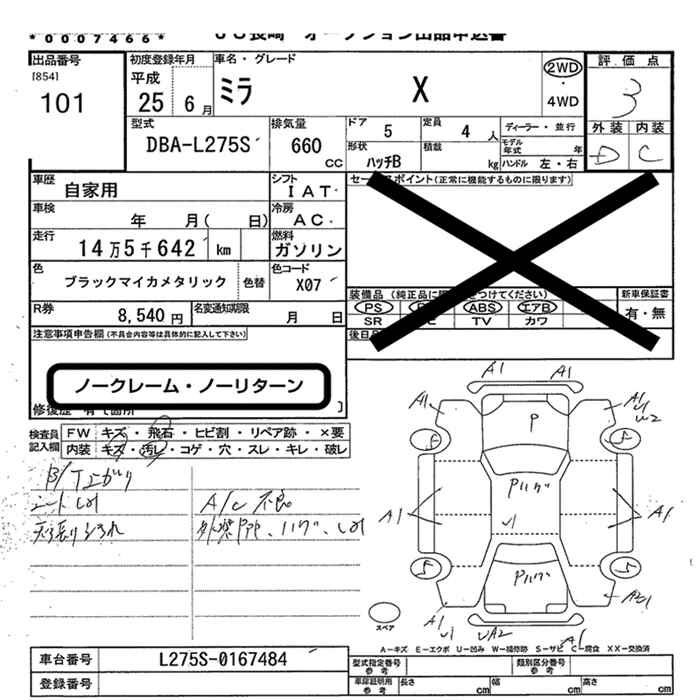 *0007466*
JU長崎 オークション出品申込書
出品番号
[854]
101
初度登録年月
平成
25年 6月
車名・グレード
ミラ X
2WD
・
4WD
評価点
3
外装 内装
D C
型式
DBA-L275S
排気量
660
CC
ドア 5
定員 4 人
ディーラー・並行
形状
ハッチB
積載 kg
モデル年式 年
ハンドル 左・右
車歴 自家用
シフト IAT
車検 年 月( 日)
冷房 AC
走行 14万5千642 km
燃料 ガソリン
色 ブラックマイカメタリック 色替
色コード X07
R券 8,540円
名変通知期限 月 日
セールスポイント(正常に機能するものに限ります)
装備品(純正品に をつけてください)
PS ABS エアB
SR TV カワ
新車保証書
有・無
後日
注意事項申告欄(不具合内容等は具体的に記入して下さい)
ノークレーム・ノーリターン
修復歴 有
検査員記入欄
FW キズ・飛石・ヒビ割・リペア跡・×要
内装 キズ・汚レ・コゲ・穴・スレ・キレ・破レ
A/C不良
A1 A1
A1 A1
U2
P
S S
Pハゲ
A1 A1
S S
Pハゲ
A1
U1 UA2 A1
スペア
A-キズ E-エクボ U-凹み W-補修跡 S-サビ C-腐食 XX-交換済
車台番号 L275S-0167484
登録番号
型式指定番号 参考
類別区分番号 参考
車庫証明用 参考
長さ cm
幅 cm
高さ cm